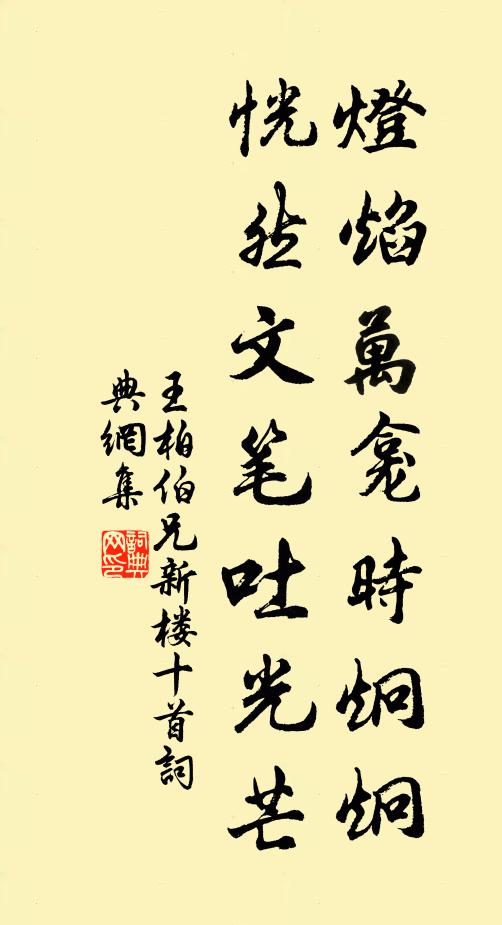 燈焰萬龛時炯炯
恍然文笔吐光芒
王柏伯兄新楼十首詞
典網集
詞典
网印